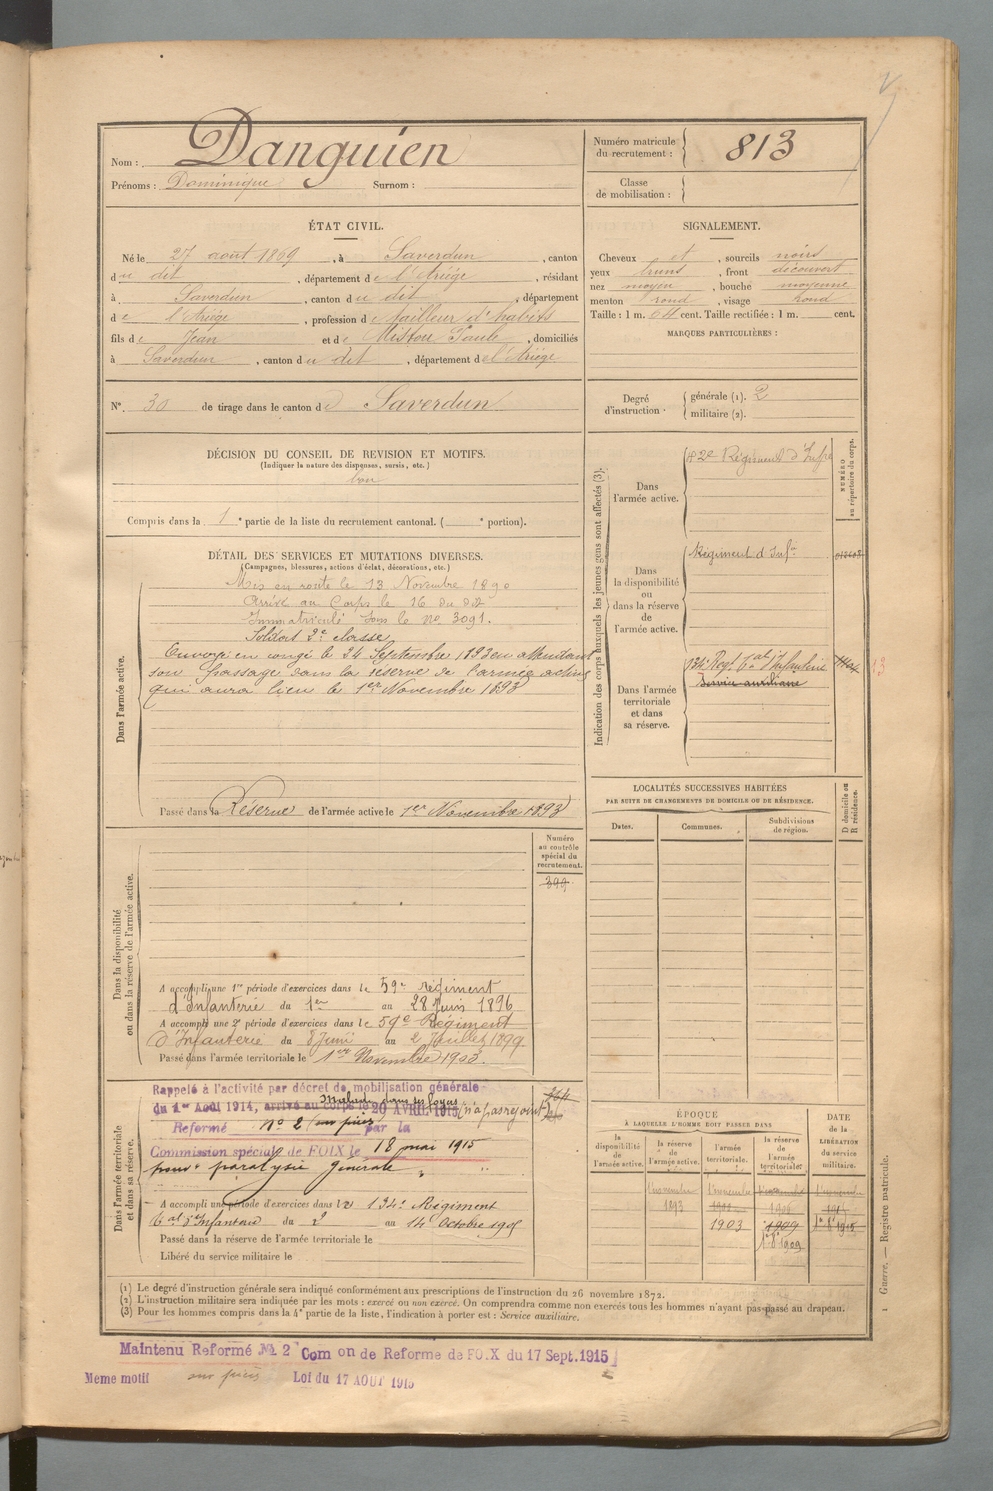 Nom : Danguien
Prénoms : Dominique Surnom :
Numéro matricule du recrutement : 813
Classe de mobilisation :
ÉTAT CIVIL.
Né le 27 août 1869, à Saverdun, canton
du dit, département de l'Ariège, résidant
à Saverdun, canton du dit, département
de l'Ariège, profession de tailleur d'habits
fils de Jean et de Mistou Paule, domiciliés
à Saverdun, canton du dit, département de l'Ariège
SIGNALEMENT.
Cheveux et, sourcils noirs
yeux bruns, front découvert
nez moyen, bouche moyenne
menton rond, visage rond
Taille : 1 m. 64 cent. Taille rectifiée : 1 m. cent.
MARQUES PARTICULIÈRES :
N° 30 de tirage dans le canton de Saverdun
Degré d'instruction. générale (1). 2
militaire (2).
DÉCISION DU CONSEIL DE REVISION ET MOTIFS.
(Indiquer la nature des dispenses, sursis, etc.)
bon
Compris dans la 1e partie de la liste du recrutement cantonal. ( e portion).
DÉTAIL DES SERVICES ET MUTATIONS DIVERSES.
(Campagnes, blessures, actions d'éclat, décorations, etc.)
Dans l'armée active.
Mis en route le 13 Novembre 1890
Arrivé au Corps le 16 du dit
Immatriculé sous le No 3091.
Soldat 2e classe
Envoyé en congé le 24 Septembre 1893 en attendant
son passage dans la réserve de l'armée active
qui aura lieu le 1er Novembre 1893
Passé dans la Réserve de l'armée active le 1er Novembre 1893
Indication des corps auxquels les jeunes gens sont affectés (3).
NUMÉRO au répertoire du corps.
Dans l'armée active.
Régiment d'Infre
Dans la disponibilité ou dans la réserve de l'armée active.
Régiment d'Infie
Dans l'armée territoriale et dans sa réserve.
134e Regt Tal d'Infanterie
Service auxiliaire
LOCALITÉS SUCCESSIVES HABITÉES
PAR SUITE DE CHANGEMENTS DE DOMICILE OU DE RÉSIDENCE.
Dates. Communes. Subdivisions de région.
D domicile ou R résidence.
Dans la disponibilité ou dans la réserve de l'armée active.
Numéro au contrôle spécial du recrutement.
399
A accompli une 1re période d'exercices dans le 59e régiment
d'Infanterie du 1er au 28 Juin 1896
A accompli une 2e période d'exercices dans le 59e Régiment
d'Infanterie du 5 Juin au 2 Juillet 1899.
Passé dans l'armée territoriale le 1er Novembre 1903.
Dans l'armée territoriale et dans sa réserve.
Rappelé à l'activité par décret de mobilisation générale
Malade dans ses foyers
du 1er Août 1914, arrivé au corps le 20 AVRIL 1915 (n'a pas rejoint)
Reformé No 2 (sur pièces) par la
Commission spécial de FOIX le 18 mai 1915
pour paralysie générale
A accompli une période d'exercices dans le 134e Régiment
Tal d'Infanterie du 2 au 14 Octobre 1905
Passé dans la réserve de l'armée territoriale le
Libéré du service militaire le
ÉPOQUE
À LAQUELLE L'HOMME DOIT PASSER DANS
la disponibilité de l'armée active.
la réserve de l'armée active.
l'armée territoriale.
la réserve de l'armée territoriale.
DATE de la LIBÉRATION du service militaire.
1 novembre 1 novembre 1 novembre 1 novembre
1893
1903 1909 1er 8 1915
1er 8 1909
(1) Le degré d'instruction générale sera indiqué conformément aux prescriptions de l'instruction du 26 novembre 1872.
(2) L'instruction militaire sera indiquée par les mots : exercé ou non exercé. On comprendra comme non exercés tous les hommes n'ayant pas passé au drapeau.
(3) Pour les hommes compris dans la 4e partie de la liste, l'indication à porter est : Service auxiliaire.
1 Guerre. — Registre matricule.
Maintenu Reformé No 2 Com on de Reforme de FOIX du 17 Sept. 1915
Meme motif sur pièces Loi du 17 AOUT 1915